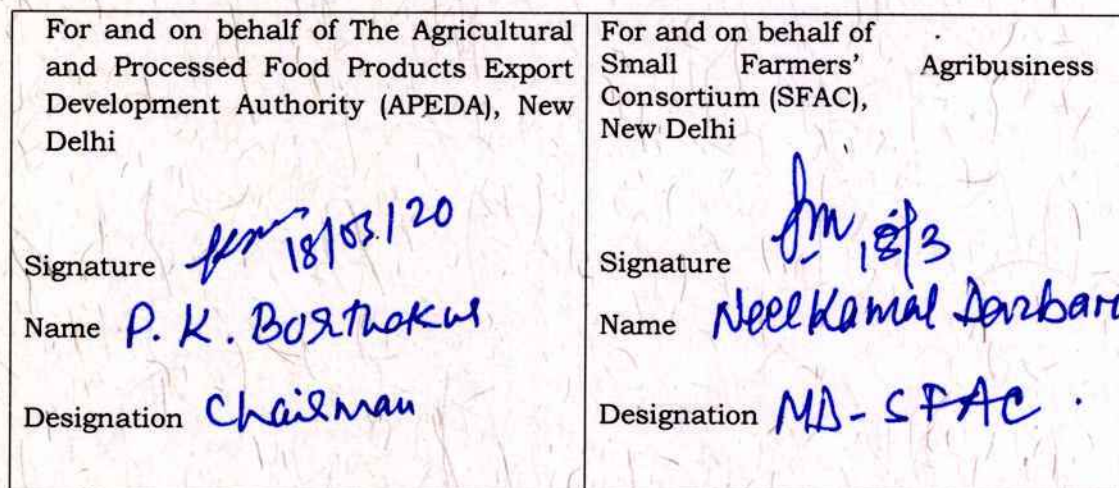 For and on behalf of The Agricultural
and Processed Food Products Export
Development Authority (APEDA), New
Delhi
Signature 18/03/20
Name P. K. Borthakur
Designation Chairman
For and on behalf of
Small Farmers' Agribusiness
Consortium (SFAC),
New Delhi
Signature 18/3
Name Neelkamal Darbari
Designation MD-SFAC.